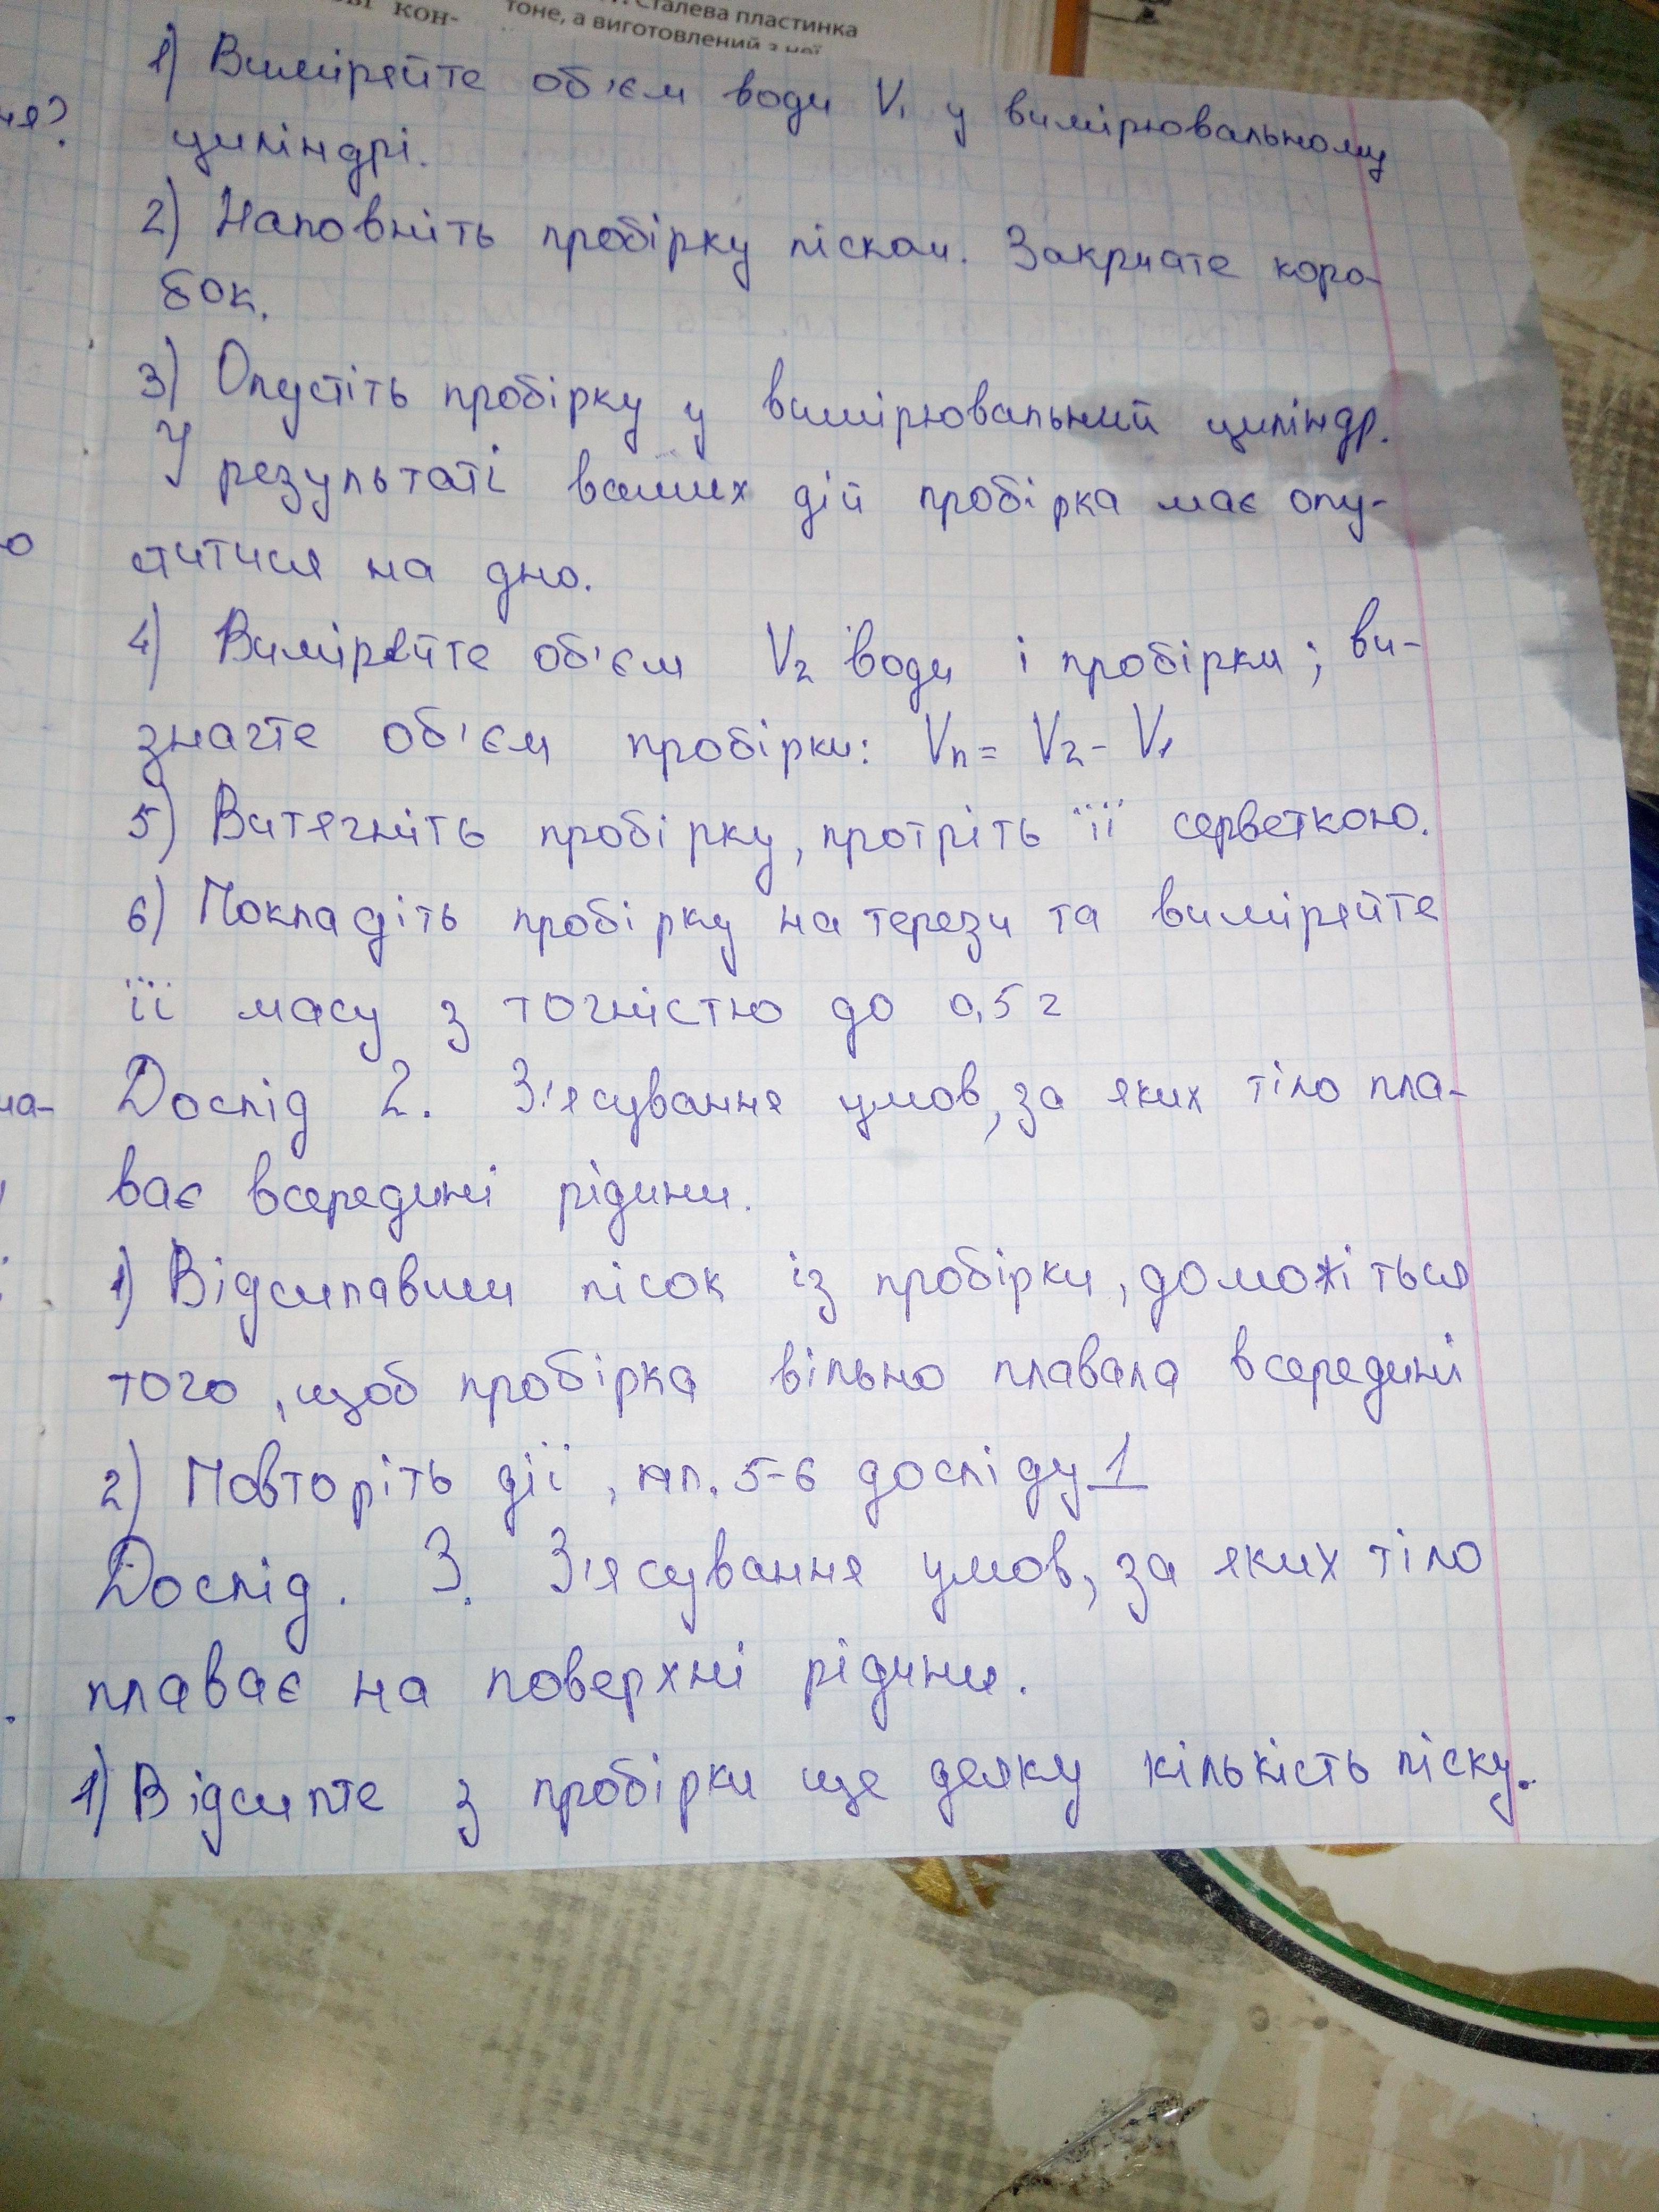 кон-
Сталева пластинка
тоне, а виготовлений з неї
1) Виміряйте об'єм води V₁ у вимірювальному
циліндрі.
2) Наповніть пробірку піском. Закрийте коро-
бок.
3) Опустіть пробірку у вимірювальний циліндр.
У результаті ваших дій пробірка має опу-
ститися на дно.
4) Виміряйте об'єм V₂ води і пробірки; ви-
значте об'єм пробірки: Vп = V₂ - V₁
5) Витягніть пробірку, протріть її серветкою.
6) Покладіть пробірку на терези та виміряйте
її масу з точністю до 0,5 г
Дослід 2. З'ясування умов, за яких тіло пла-
ває всередині рідини.
1) Відсипавши пісок із пробірки, доможіться
того, щоб пробірка вільно плавала всередині
2) Повторіть дії, пп. 5-6 досліду 1
Дослід. 3. З'ясування умов, за яких тіло
плаває на поверхні рідини.
1) Відсипте з пробірки ще деяку кількість піску.